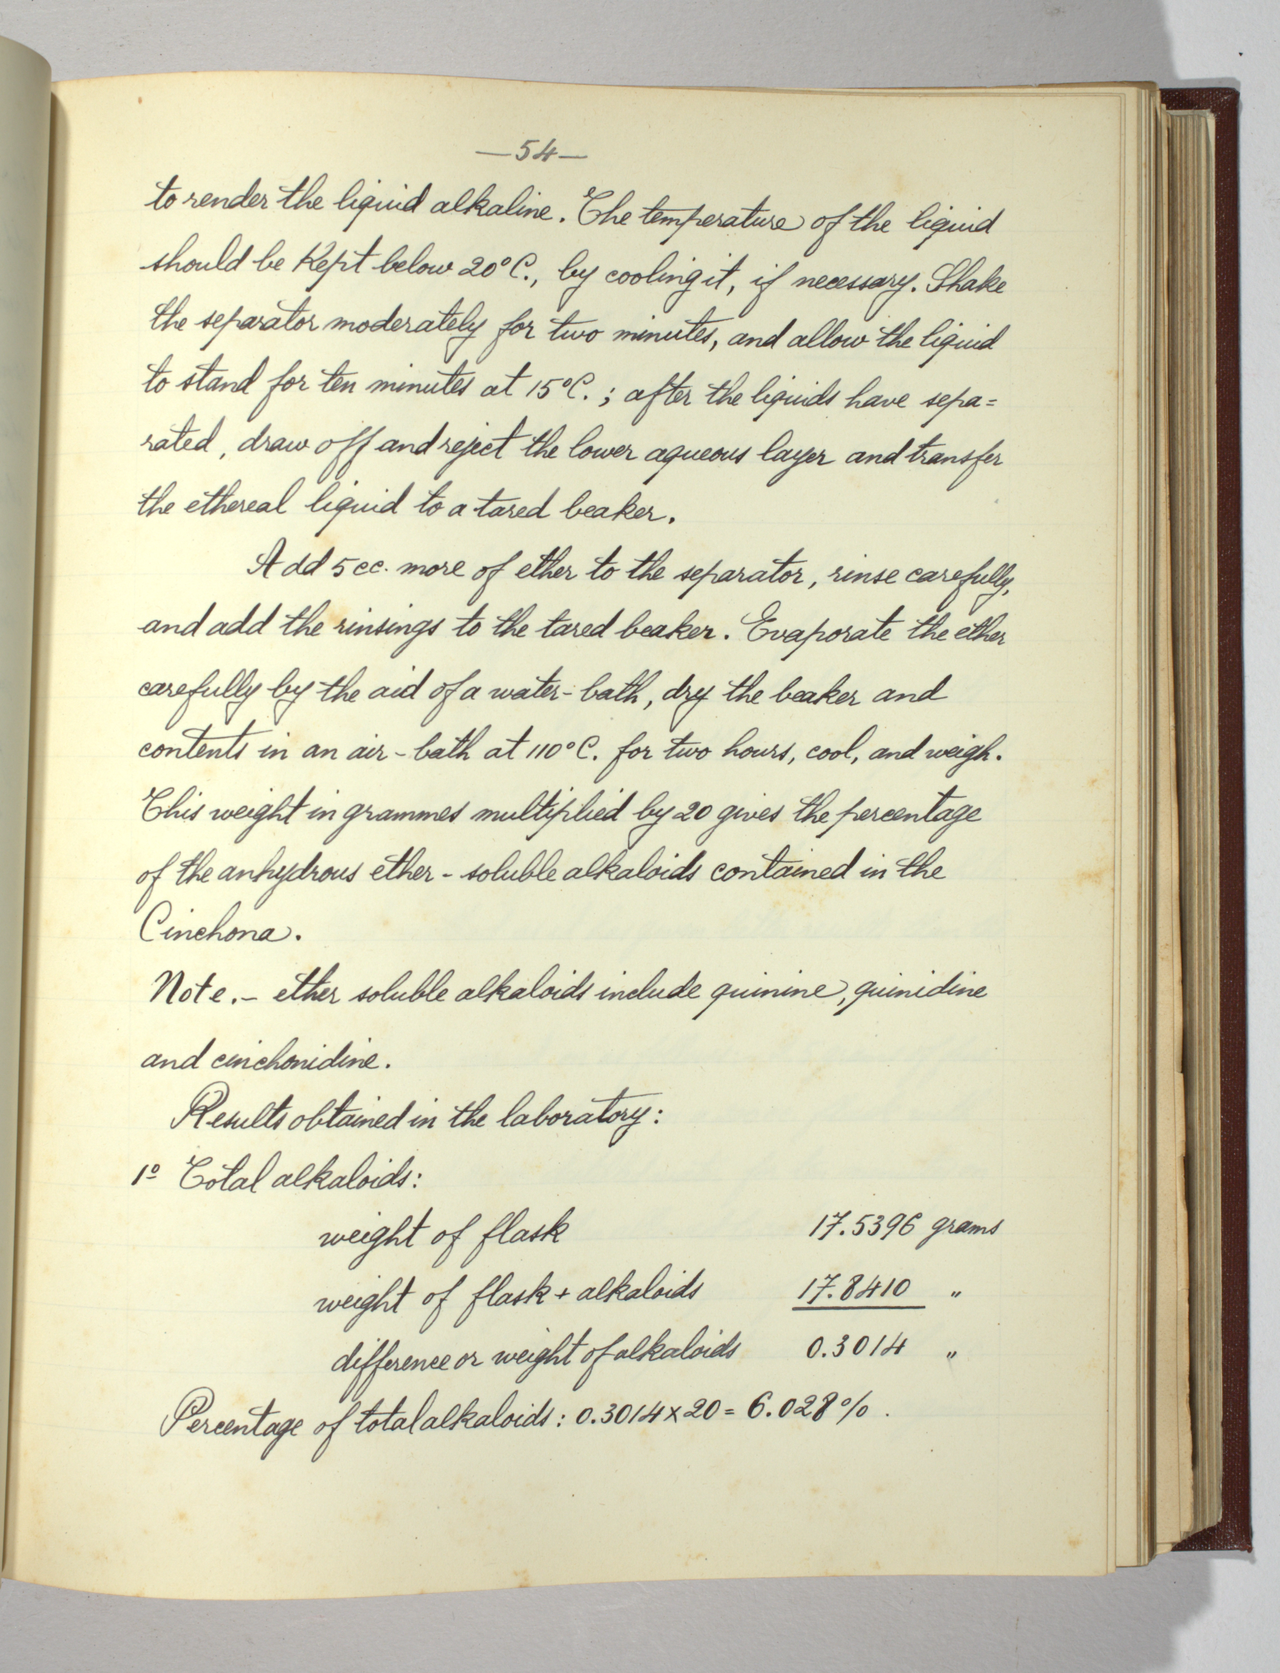 —54—
to render the liquid alkaline. The temperature of the liquid
should be Kept below 20°C., by cooling it, if necessary. Shake
the separator moderately for two minutes, and allow the liquid
to stand for ten minutes at 15°C.; after the liquids have sepa=
rated, draw off and reject the lower aqueous layer and transfer
the ethereal liquid to a tared beaker.
Add 5 cc. more of ether to the separator, rinse carefully,
and add the rinsings to the tared beaker. Evaporate the ether
carefully by the aid of a water-bath, dry the beaker and
contents in an air-bath at 110°C. for two hours, cool, and weigh.
This weight in grammes multiplied by 20 gives the percentage
of the anhydrous ether-soluble alkaloids contained in the
Cinchona.
Note.— ether soluble alkaloids include quinine, quinidine
and cinchonidine.
Results obtained in the laboratory:
1º Total alkaloids:
weight of flask 17.5396 grams
weight of flask + alkaloids 17.8410 "
difference or weight of alkaloids 0.3014 "
Percentage of total alkaloids: 0.3014 x 20 = 6.028%.